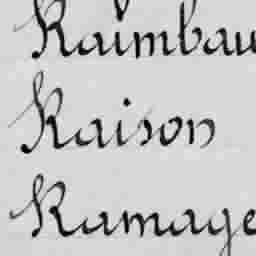 Raimbau
Raison
Ramage